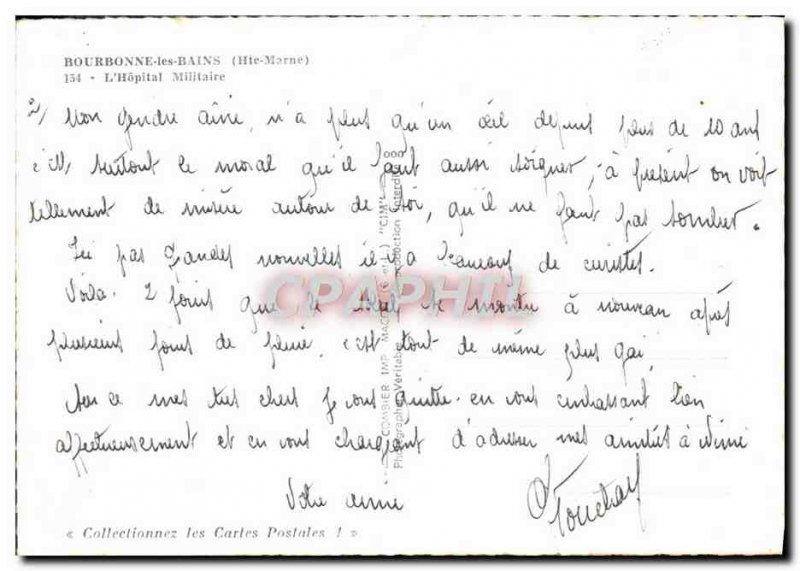 BOURBONNE-les-BAINS (Hte-Marne)
134 - L'Hôpital Militaire
2) Mon gendre aîné, n'a plus qu'un œil depuis plus de 10 ans
c'est surtout le moral qu'il faut aussi soigner, à présent on voit
tellement de misère autour de soi, qu'il ne faut pas sombrer.
Ici pas grandes nouvelles il y a beaucoup de curistes.
Voilà 2 jours que le soleil se montre à nouveau après
plusieurs jours de pluie, c'est tout de même plus gai
Sur ce mes très chers je vous quitte en vous embrassant bien
affectueusement et en vous chargeant d'adresser mes amitiés à
Votre amie
« Collectionnez les Cartes Postales ! »
COMBIER IMP. MACON "CIM"
Photographie Véritable Reproduction Interdite
CPAPHIL